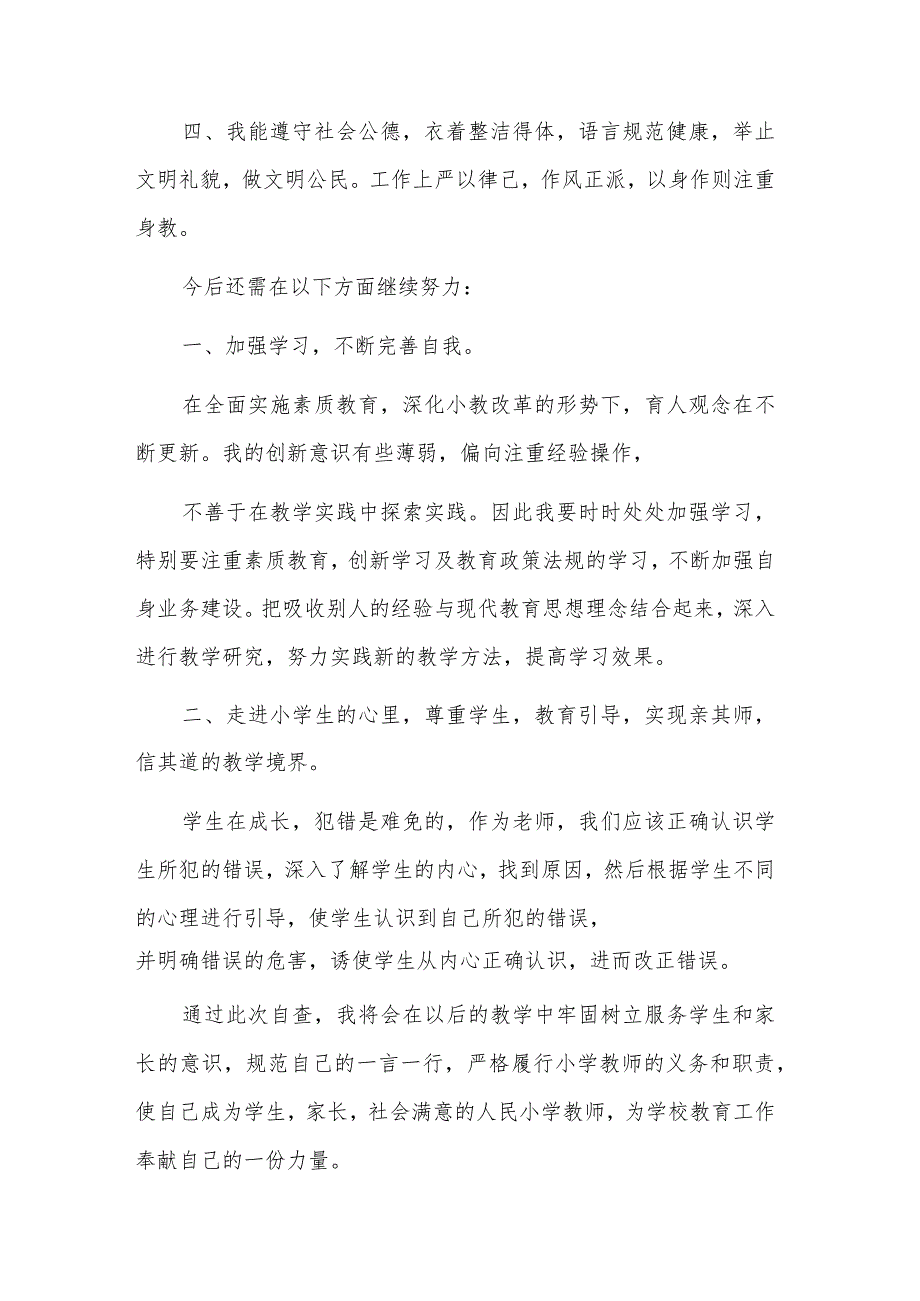 四、我能遵守社会公德，衣着整洁得体，语言规范健康，举止
文明礼貌，做文明公民。工作上严以律己，作风正派，以身作则注重
身教。
今后还需在以下方面继续努力：
一、加强学习，不断完善自我。
在全面实施素质教育，深化小教改革的形势下，育人观念在不
断更新。我的创新意识有些薄弱，偏向注重经验操作，
不善于在教学实践中探索实践。因此我要时时处处加强学习，
特别要注重素质教育，创新学习及教育政策法规的学习，不断加强自
身业务建设。把吸收别人的经验与现代教育思想理念结合起来，深入
进行教学研究，努力实践新的教学方法，提高学习效果。
二、走进小学生的心里，尊重学生，教育引导，实现亲其师，
信其道的教学境界。
学生在成长，犯错是难免的，作为老师，我们应该正确认识学
生所犯的错误，深入了解学生的内心，找到原因，然后根据学生不同
的心理进行引导，使学生认识到自己所犯的错误，
并明确错误的危害，诱使学生从内心正确认识，进而改正错误。
通过此次自查，我将会在以后的教学中牢固树立服务学生和家
长的意识，规范自己的一言一行，严格履行小学教师的义务和职责，
使自己成为学生，家长，社会满意的人民小学教师，为学校教育工作
奉献自己的一份力量。